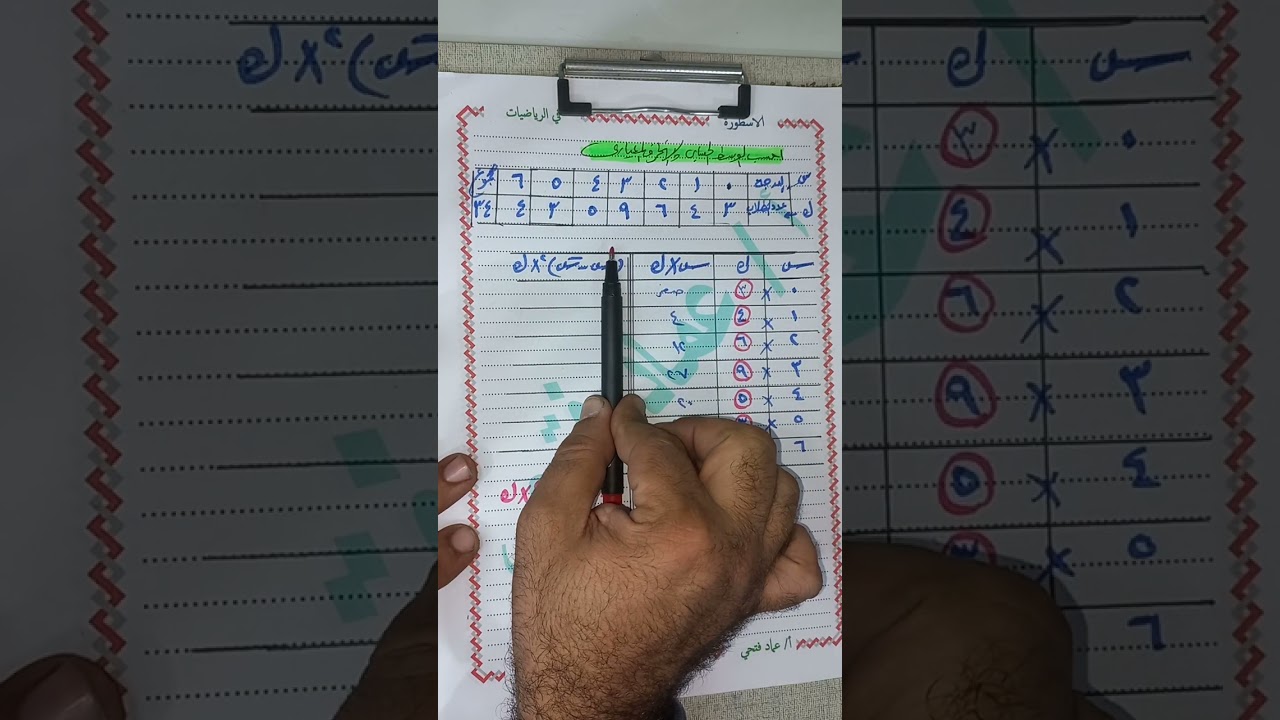 الاسطورة في الرياضيات
احسب الوسط الحسابي والانحراف المعياري
س الدرجة ٠ ١ ٢ ٣ ٤ ٥ ٦
ك عدد الطلاب ٣ ٤ ٦ ٩ ٥ ٣ ٤ ٣٤
س ك س×ك (س-سَ)٢×ك
٠ × ٣ صفر
١ × ٤ ٤
٢ × ٦ ١٢
٣ × ٩ ٢٧
٤ × ٥ ٢٠
٥ ×
٦
×ك
أ/ عماد فتحي